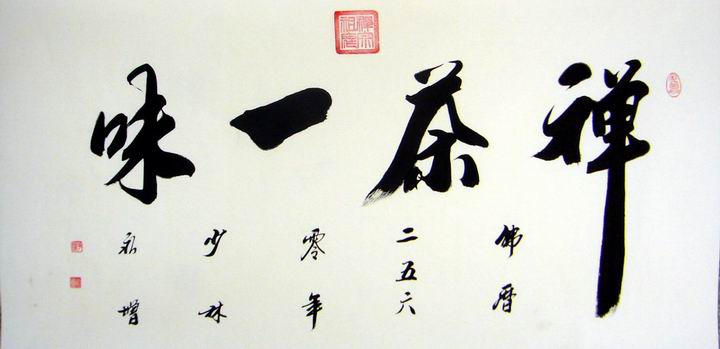 禅茶一味
佛曆
二五六
零年
少林
永增